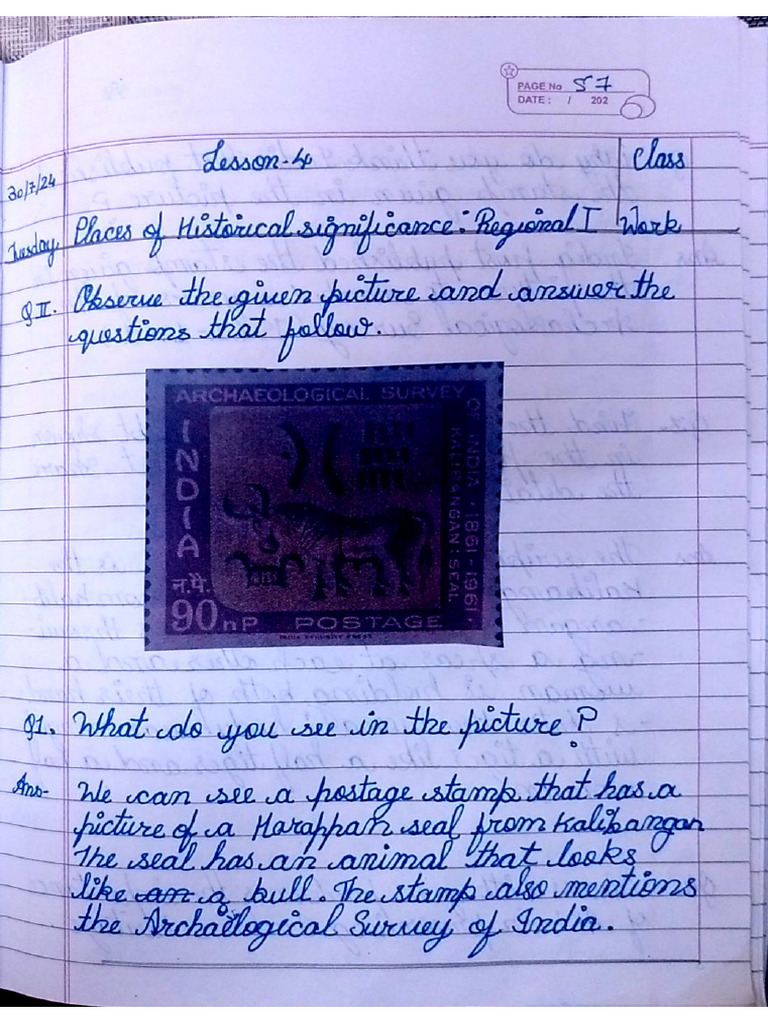 PAGE No 57
DATE: / 202
Lesson-4
Class
30/7/24
Tuesday
Places of Historical significance: Regional I
Work
Q II. Observe the given picture and answer the
questions that follow.
ARCHAEOLOGICAL SURVEY
OF INDIA · 1861-1961 ·
KALIBANGAN: SEAL
INDIA
न.पै.
90 nP
POSTAGE
INDIA SECURITY PRESS
Q1. What do you see in the picture?
Ans- We can see a postage stamp that has a
picture of a Harappan seal from Kalibangan
The seal has an animal that looks
like an a bull. The stamp also mentions
the Archaelogical Survey of India.